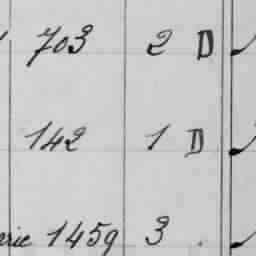 703 2 D
142 1 D
erie 1459 3